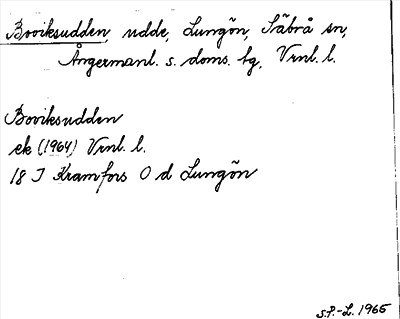 Booiksudden, udde, Lungön, Säbrå sn,
Ångermanl. s. doms. tg, Vrnl. l.
Booiksudden
ek (1964) Vrnl. l.
18 I Kramfors O d Lungön
S.P.-L. 1965